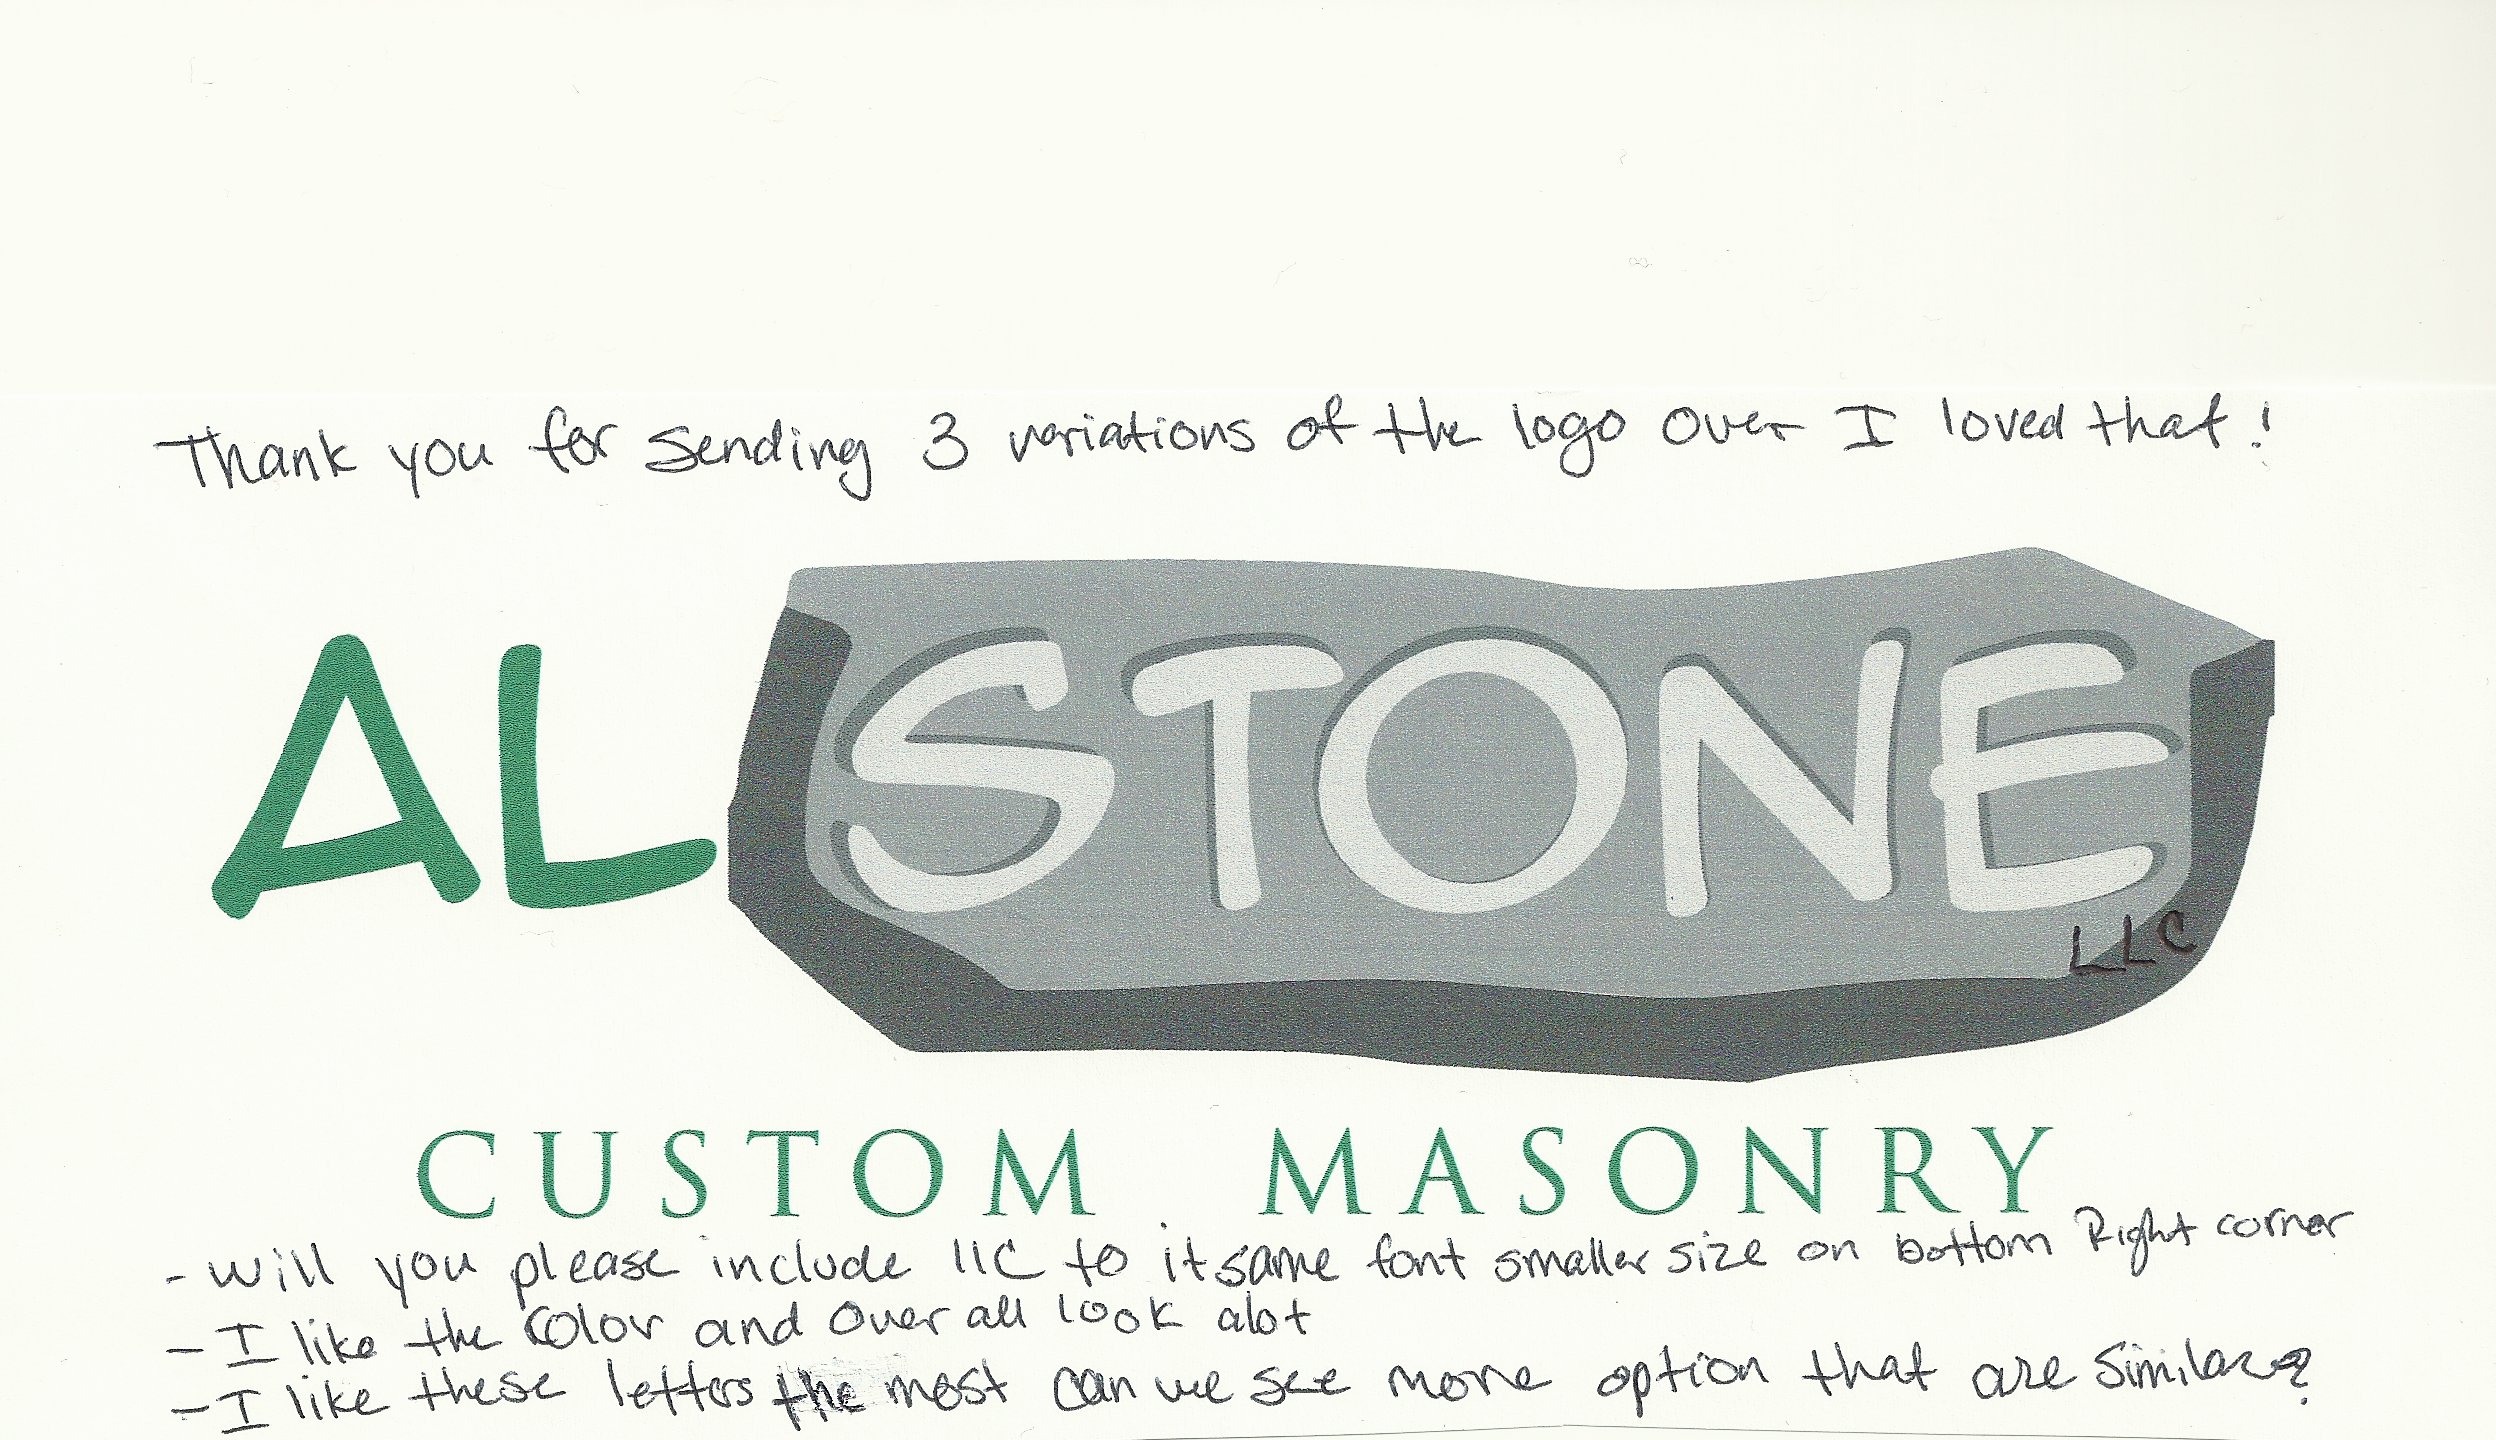 Thank you for sending 3 variations of the logo over I loved that!
ALSTONE
LLC
CUSTOM MASONRY
- Will you please include llc to it same font smaller size on bottom Right corner
- I like the color and over all look alot
- I like these letters the most can we see more option that are similar?